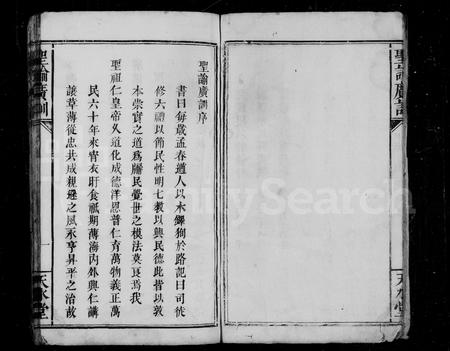 聖諭廣訓序
書曰每歲孟春遒人以木鐸狥於路記曰司徒
修六禮以節民性明七教以興民德此皆以敦
本崇實之道爲牖民覺世之模法莫良爲我
聖祖仁皇帝久道化成德洋恩普仁育萬物義正萬
民六十年來宵衣旰食祗期薄海內外興仁講
讓革薄從忠共成親遜之風永享昇平之治故
聖諭廣訓
天水堂
聖諭廣訓
天水堂
FamilySearch